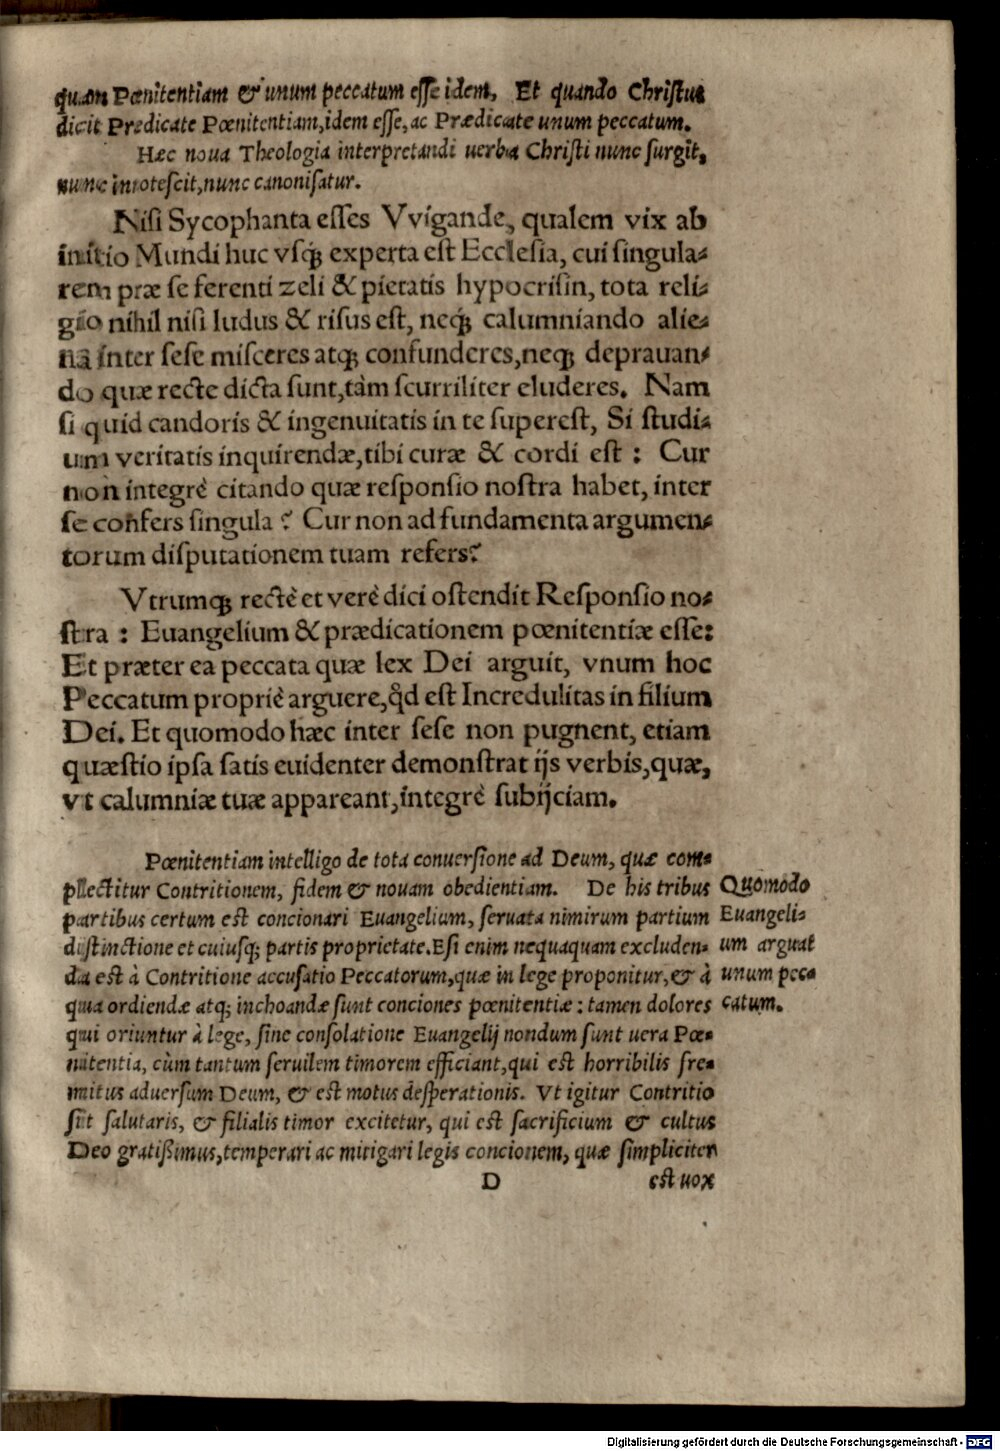 quam Pœnitentiam & unum peccatum esse idem, Et quando Christus
dicit Predicate Pœnitentiam, idem esse, ac Prædicate unum peccatum.
Hæc noua Theologia interpretandi uerba Christi nunc surgit,
nunc innotescit, nunc canonisatur.
Nisi Sycophanta esses Vvigande, qualem vix ab
initio Mundi huc vsq; experta est Ecclesia, cui singula-
rem præ se ferenti zeli & pietatis hypocrisin, tota reli-
gio nihil nisi ludus & risus est, neq; calumniando alie-
nā inter sese misceres atq; confunderes, neq; deprauan-
do quæ recte dicta sunt, tàm scurriliter eluderes. Nam
si quid candoris & ingenuitatis in te superest, Si studi-
um veritatis inquirendæ, tibi curæ & cordi est : Cur
non integrè citando quæ responsio nostra habet, inter
se confers singula? Cur non ad fundamenta argumen-
torum disputationem tuam refers?
Vtrumq; rectè et verè dici ostendit Responsio no-
stra : Euangelium & prædicationem pœnitentiæ esse:
Et præter ea peccata quæ lex Dei arguit, vnum hoc
Peccatum propriè arguere, qd̄ est Incredulitas in filium
Dei. Et quomodo hæc inter sese non pugnent, etiam
quæstio ipsa satis euidenter demonstrat ijs verbis, quæ,
vt calumniæ tuæ appareant, integrè subijciam.
Pœnitentiam intelligo de tota conuersione ad Deum, quæ com-
plectitur Contritionem, fidem & nouam obedientiam. De his tribus
partibus certum est concionari Euangelium, seruata nimirum partium
distinctione et cuiusq; partis proprietate. Esi enim nequaquam excluden-
da est à Contritione accusatio Peccatorum, quæ in lege proponitur, & à
qua ordiendæ atq; inchoandæ sunt conciones pœnitentiæ : tamen dolores
qui oriuntur à lege, sine consolatione Euangelij nondum sunt uera Pœ-
nitentia, cùm tantum seruilem timorem efficiant, qui est horribilis fre-
mitus aduersum Deum, & est motus desperationis. Vt igitur Contritio
sit salutaris, & filialis timor excitetur, qui est sacrificium & cultus
Deo gratißimus, temperari ac mitigari legis concionem, quæ simpliciter
D est uox
Quomodo
Euangeli-
um arguat
unum pec-
catum.
Digitalisierung gefördert durch die Deutsche Forschungsgemeinschaft - DFG